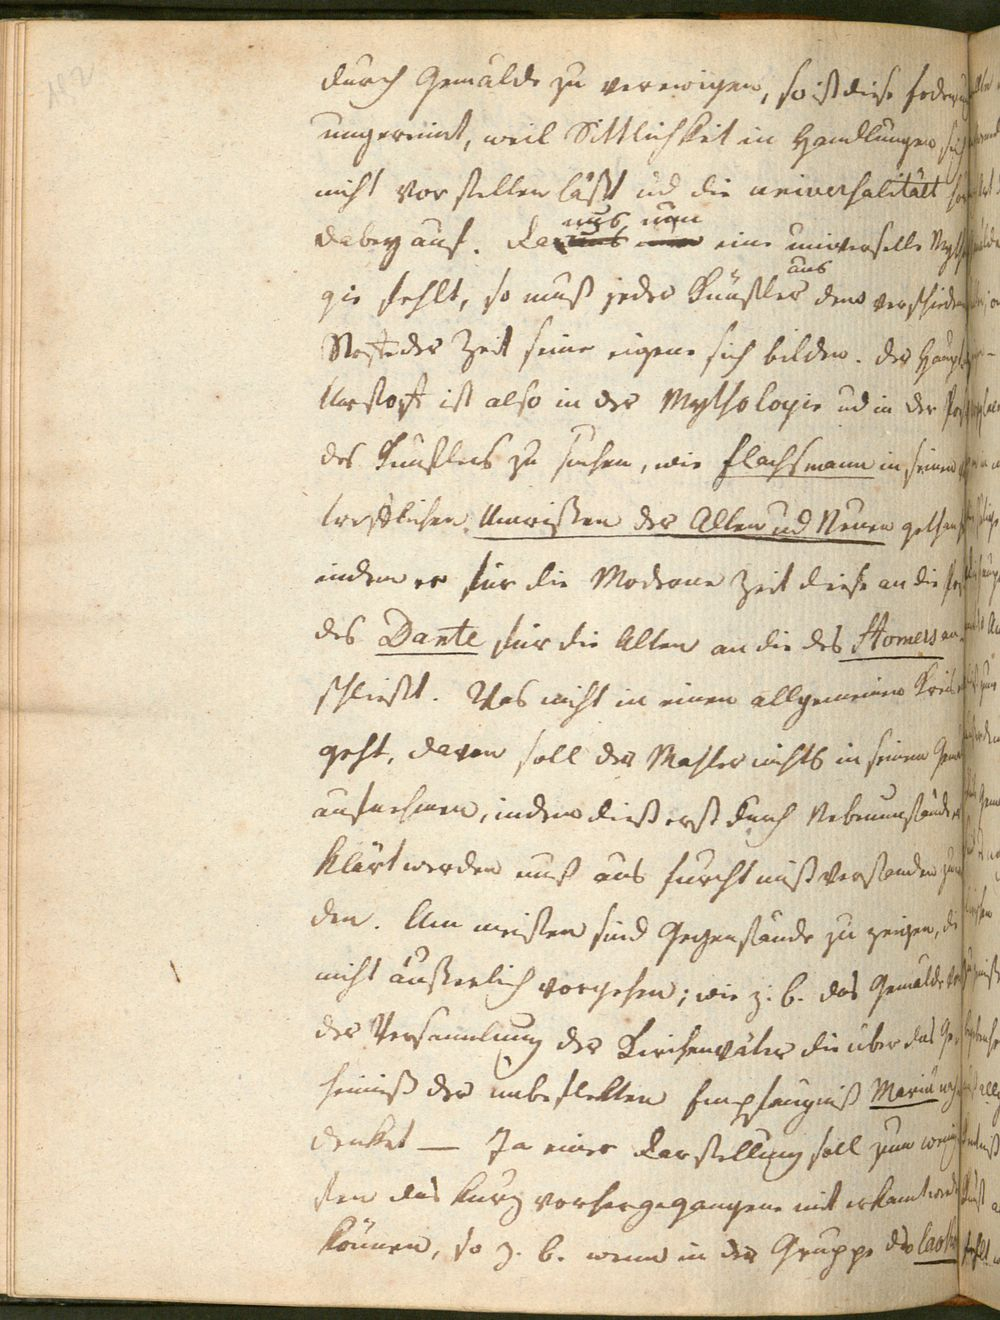 durch Gemälde zu verewigen, so ist diese
ungereimt, weil Sittlichkeit in Handlungen sich
nicht vorstellen läßt ud die universalität
dabey auf. Da uns nun eine universelle
gie fehlt, so muß jeder Künstler aus dem
Stoffe der Zeit seine eigene sich bilden. Der
Urstoff ist also in der Mythologie ud in der
des Künstlers zu suchen, wie Flachsmann in seinen
trefflichen Umrißen der Alten ud Neuen gethan
indem er für die Moderne Zeit diese an die
des Dante für die Alten an die des Homers an
schließt. Was nicht in einen allgemeinen Kreis
geht, davon soll der Mahler nichts in seinem
aufnehmen, indem dieß erst durch Nebenumstände er
klärt werden muß aus furcht mißverstanden zu
den. Am meisten sind Gegenstände zu zeigen, die
nicht äußerlich vorgehen; wie z. b. das Gemälde von
der Versammlung der Kirchenväter die über das Ge
heimniß der unbeflekten Empfängniß Mariä nach
denket — In einer Darstellung soll zum wenig
sten das kurz vorhergegangene mit erkant werden
können, so z. b. wenn in der Gruppe des Laoko